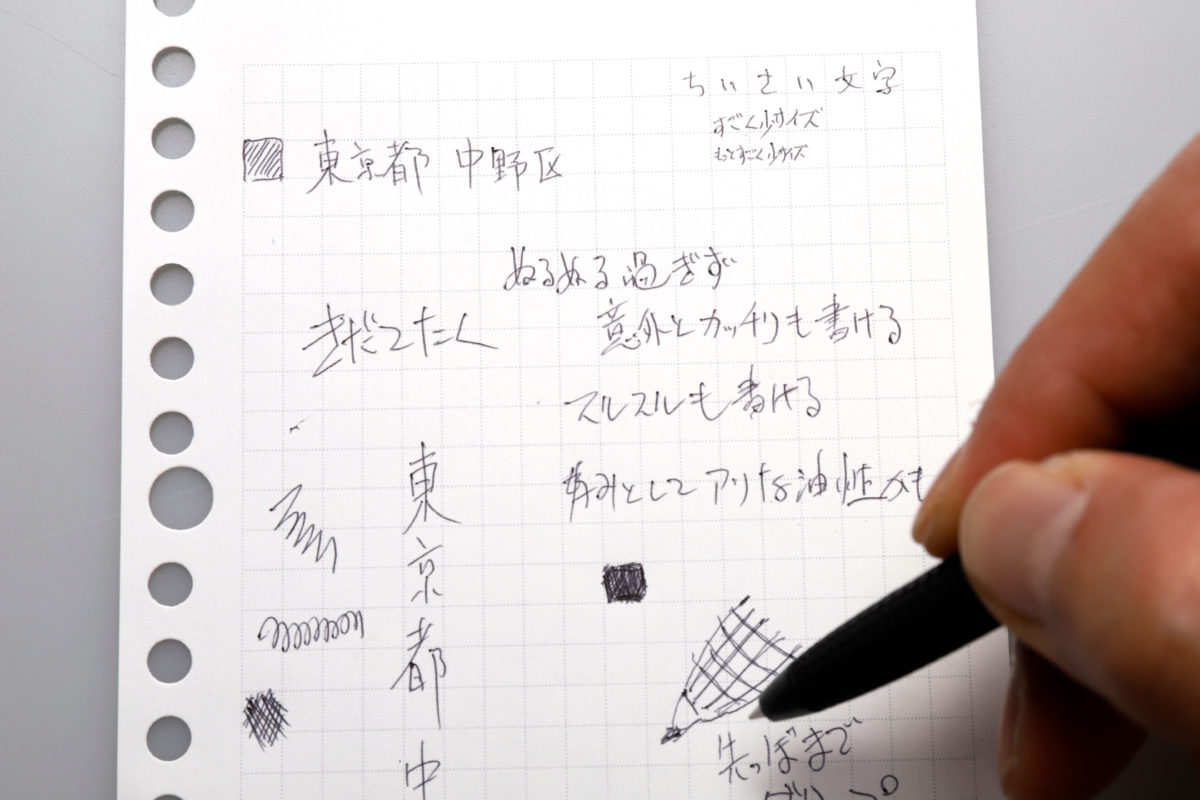 ちいさい文字
すごく小サイズ
もっとすごく小サイズ
東京都 中野区
ぬるぬる過ぎず
きだてたく
意外とカッチリも書ける
スルスルも書ける
としてアリな油性かも
東京都中
先っぽまで
グリップ